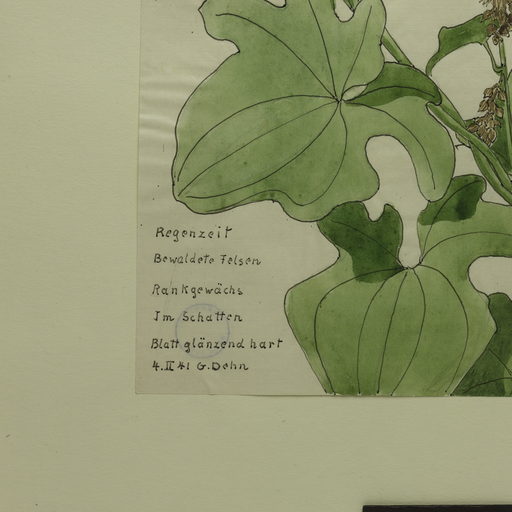 Regenzeit
Bewaldete Felsen
Rankgewächs
Im Schatten
Blatt glänzend hart
4.II 41 G.Dehn